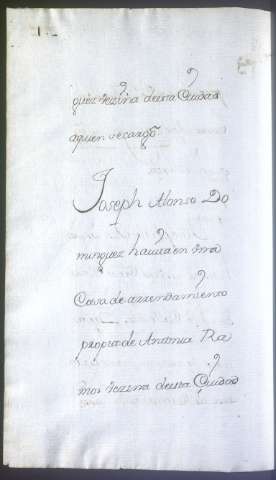 guez vezina deesta Ciudad
aquien se cargó
Joseph Alonso Do
minguez havita en una
Casa de arrendamiento
propia de Antonia Ra
mos vezina deesta Ciudad